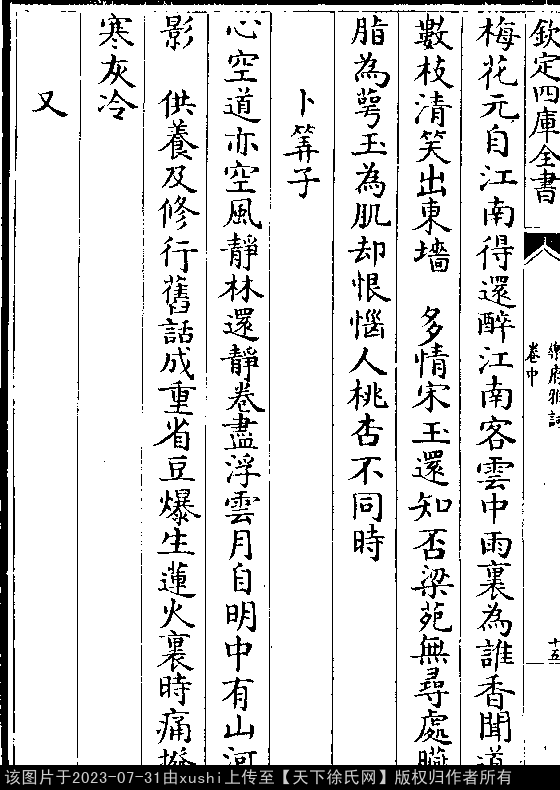 欽定四庫全書
樂府雅詞
卷中
十五
梅花元自江南得還醉江南客雲中雨裏為誰香聞道
數枝清笑出東墻　多情宋玉還知否梁苑無尋處
脂為萼玉為肌却恨惱人桃杏不同時
卜筭子
心空道亦空風靜林還靜卷盡浮雲月自明中有山河
影　供養及修行舊話成重省豆爆生蓮火裏時痛撥
寒灰冷
又
该图片于2023-07-31由xushi上传至【天下徐氏网】版权归作者所有